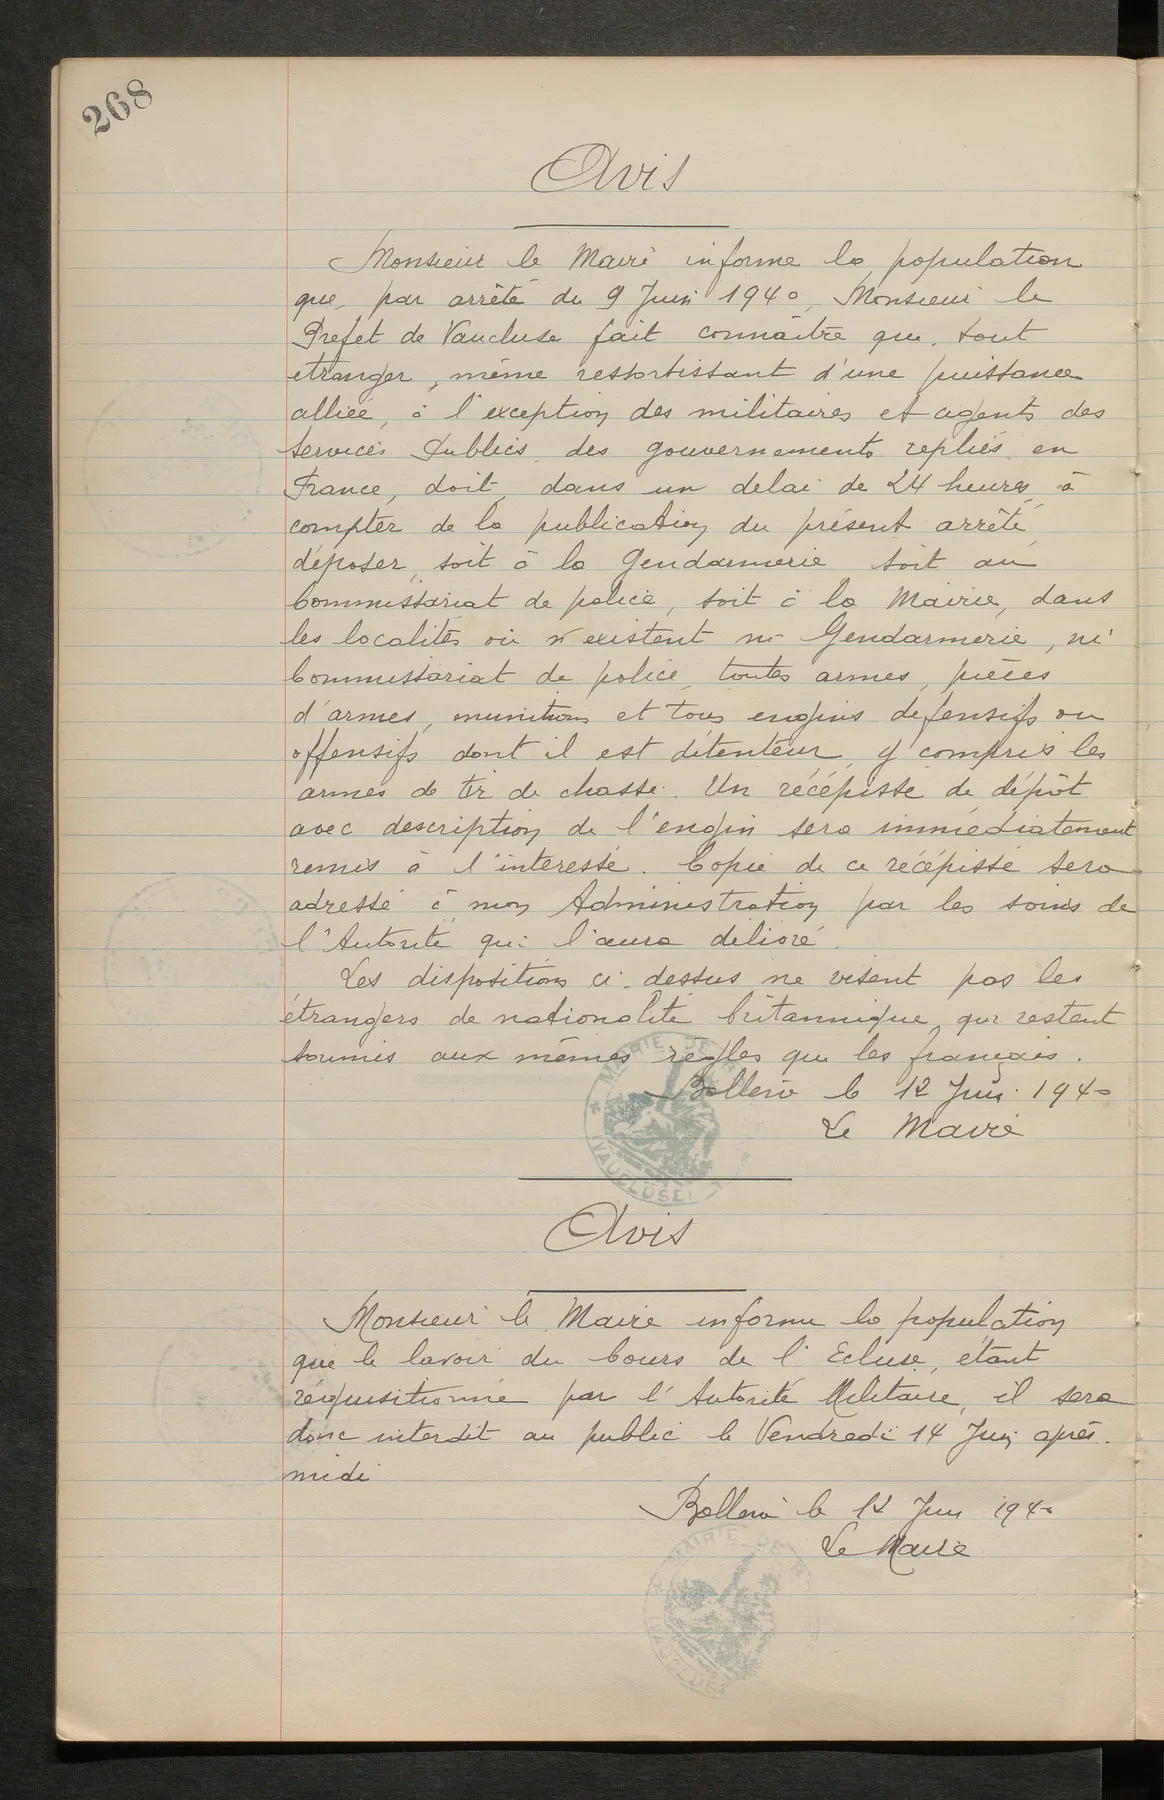 268
Avis
Monsieur le Maire informe la population
que, par arrêté du 9 Juin 1940, Monsieur le
Préfet de Vaucluse fait connaître que, tout
etranger, même ressortissant d'une puissance
alliée, à l'exception des militaires et agents des
services Publics des gouvernements repliés en
France, doit, dans un delai de 24 heures, à
compter de la publication du présent arrêté,
déposer, soit à la Gendarmerie soit au
Commissariat de police, soit à la Mairie, dans
les localités où n'existent ni Gendarmerie, ni
Commissariat de police, toutes armes, pièces
d'armes, munitions et tous engins defensifs ou
offensifs dont il est détenteur, y compris les
armes de tir de chasse. Un récépissé de dépôt
avec description de l'engin sera immédiatement
remis à l'interessé. Copie de ce récépissé sera
adressé à mon Administration par les soins de
l'Autorité qui l'aura délivré.
Les dispositions ci-dessus ne visent pas les
étrangers de nationalité britannique, qui restent
soumis aux mêmes règles que les français.
Bollène le 12 Juin 1940
Le Maire
MAIRIE DE
(VAUCLUSE)
Avis
Monsieur le Maire informe la population
que le lavoir du Cours de l'Ecluse, étant
réquisitionné par l'Autorité Militaire, il sera
donc interdit au public le Vendredi 14 Juin après-
midi
Bollène le 12 Juin 1940
Le Maire
MAIRIE DE
(VAUCLUSE